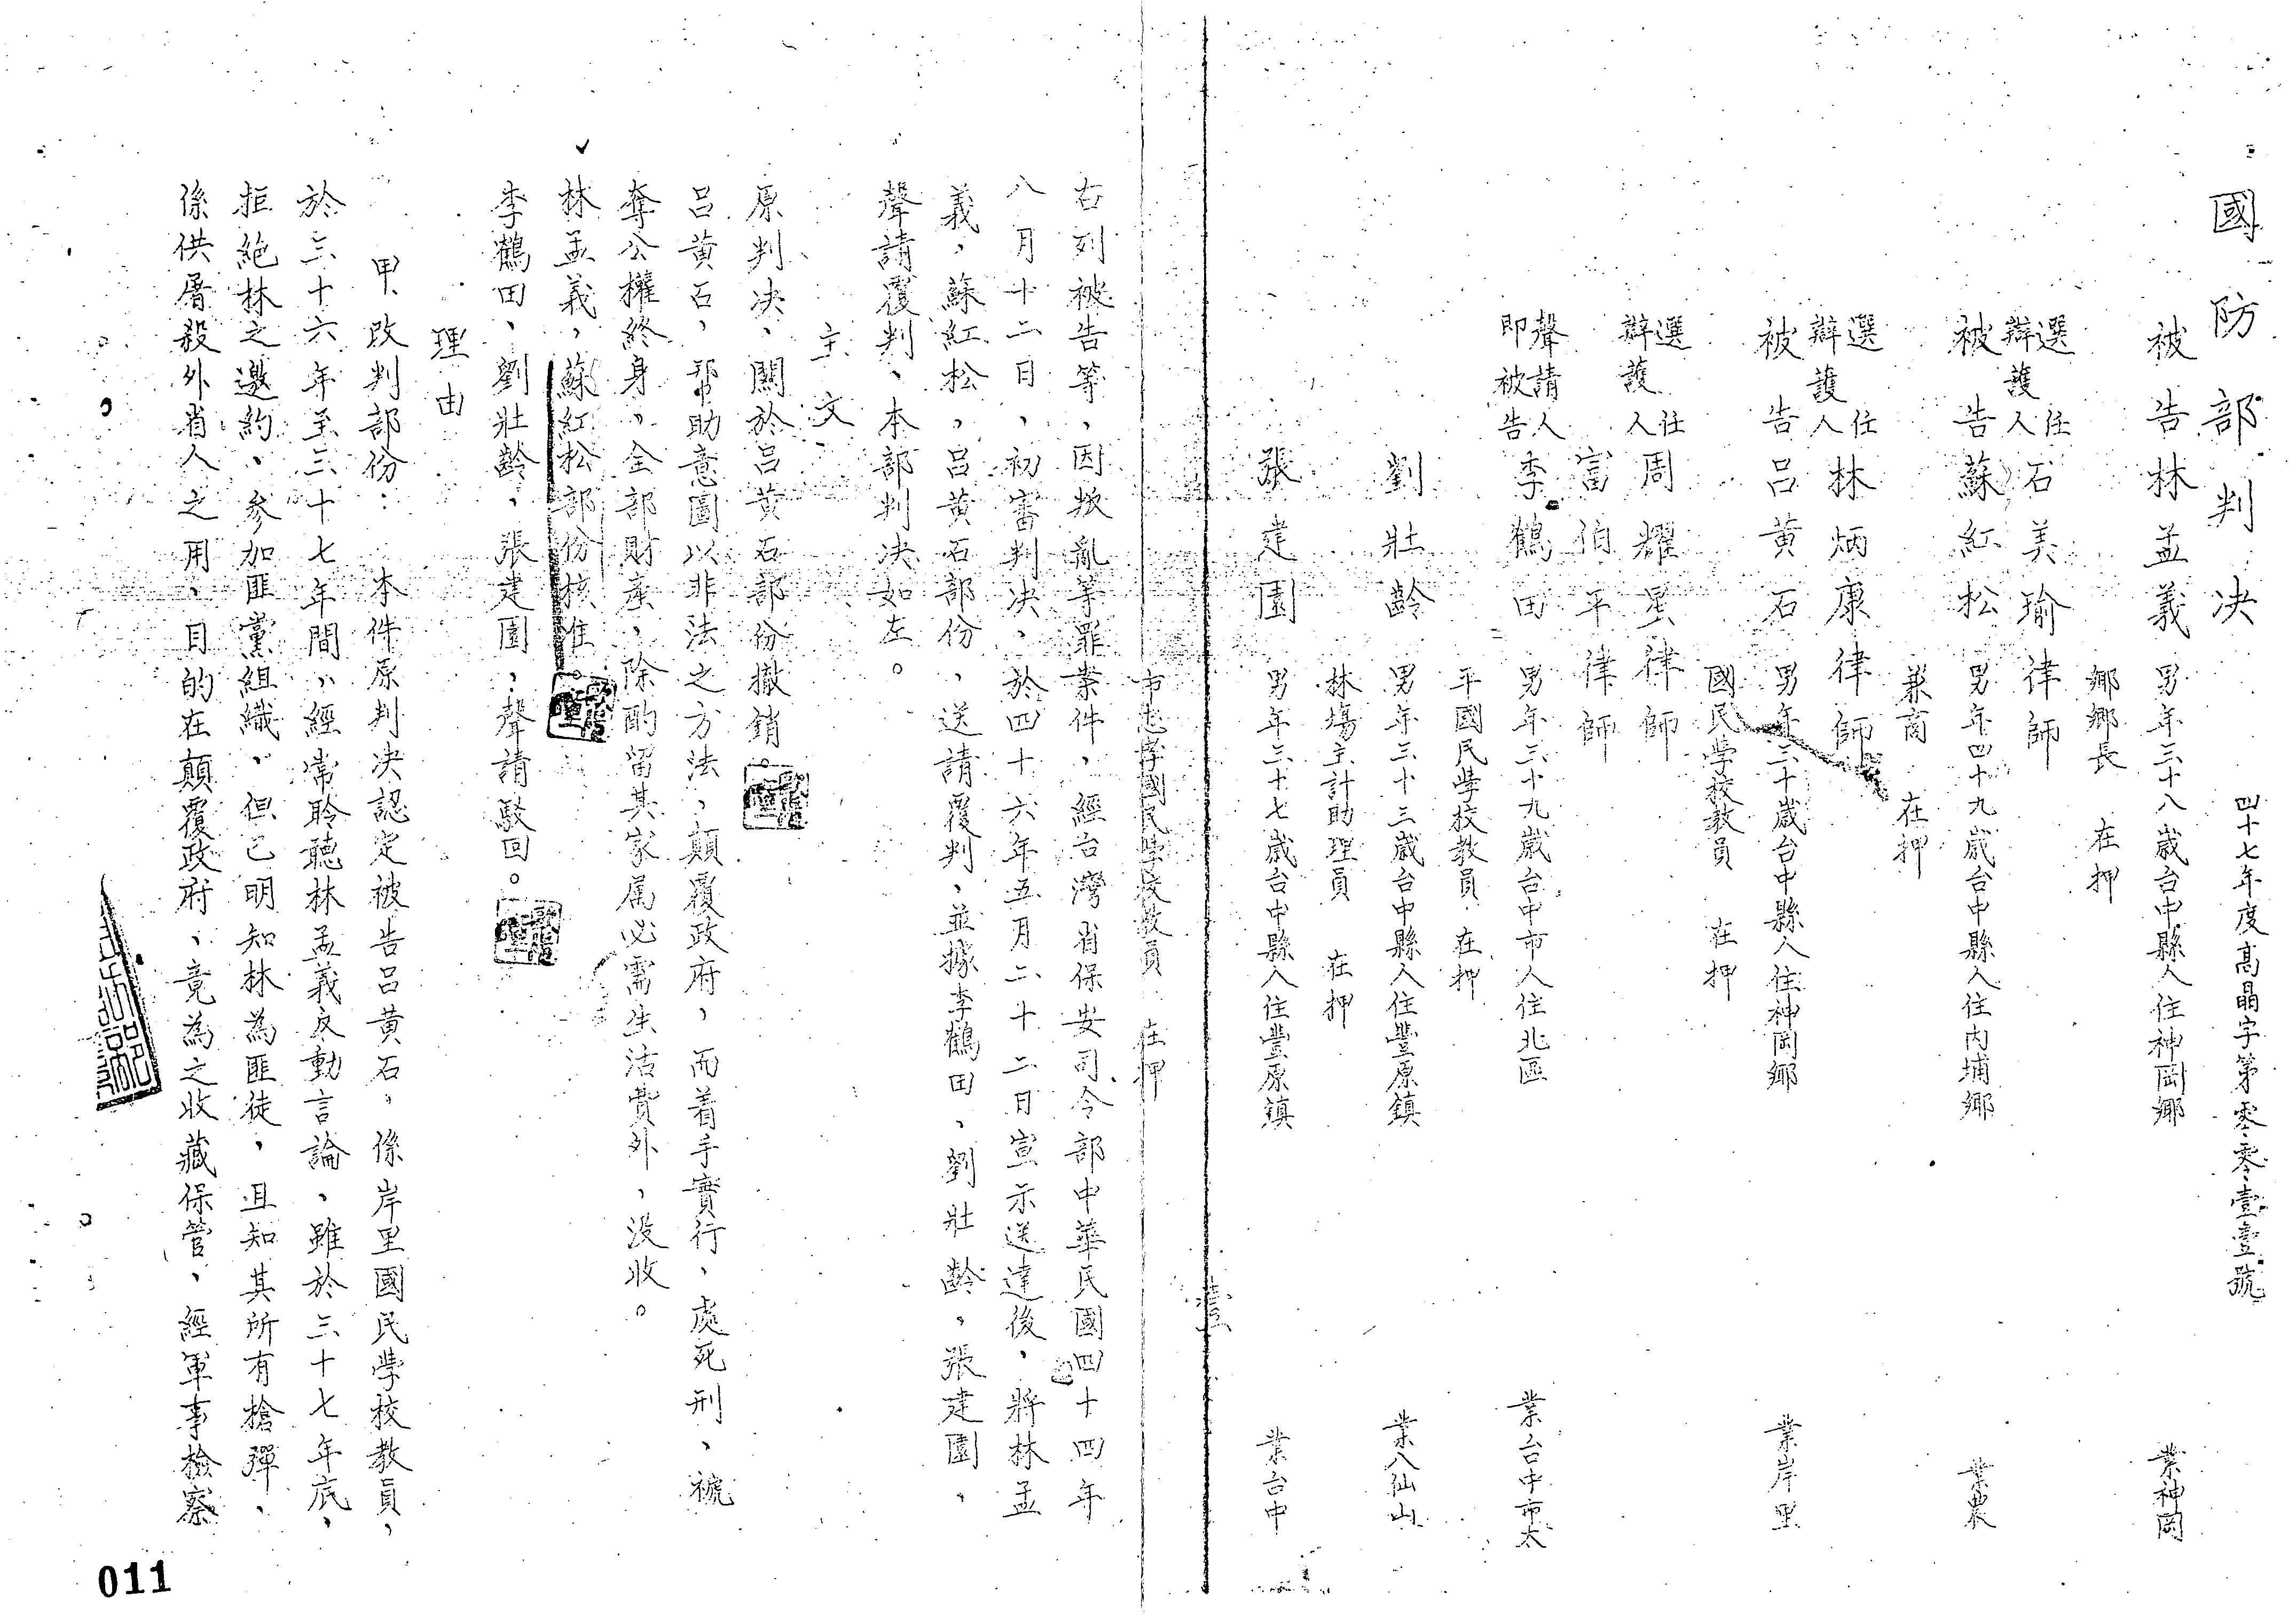 國防部判決
四十七年度高晶字第零零壹壹號
被告林孟義 男年三十八歲台中縣人住神岡鄉 業神岡
鄉鄉長 在押
選任辯護人 石美瑜律師
被告蘇紅松 男年四十九歲台中縣人住內埔鄉 業農
兼商 在押
選任辯護人 林炳康律師
被告呂黃石 男年三十歲台中縣人住神岡鄉 業岸里
國民學校教員 在押
選任辯護人 周耀星律師
富伯平律師
聲請人即被告 李鶴田 男年三十九歲台中市人住北區 業台中市太
平國民學校教員 在押
劉壯齡 男年三十三歲台中縣人住豐原鎮 業八仙山
林場主計助理員 在押
張建園 男年三十七歲台中縣人住豐原鎮 業台中
壹
市忠孝國民學校教員 在押
右列被告等,因叛亂等罪案件、經台灣省保安司令部中華民國四十四年
八月十二日,初審判決、於四十六年五月二十二日宣示送達後,將林孟
義,蘇紅松,呂黃石部份、送請覆判、並據李鶴田、劉壯齡。張建園、
聲請覆判、本部判決如左。
主文
原判決、關於呂黃石部份撤銷。
呂黃石,幫助意圖以非法之方法、顛覆政府,而着手實行、處死刑、褫
奪公權終身、全部財產、除酌留其家屬必需生活費外,沒收。
林孟義,蘇紅松部份核准。
李鶴田、劉壯齡、張建園、聲請駁回。
理由
甲、改判部份: 本件原判決認定被告呂黃石,係岸里國民學校教員,
於三十六年至三十七年間、經常聆聽林孟義反動言論、雖於三十七年底,
拒絕林之邀約、參加匪黨組織、但已明知林為匪徒,且知其所有槍彈、
係供屠殺外省人之用、目的在顛覆政府、竟為之收藏保管、經軍事檢察
011